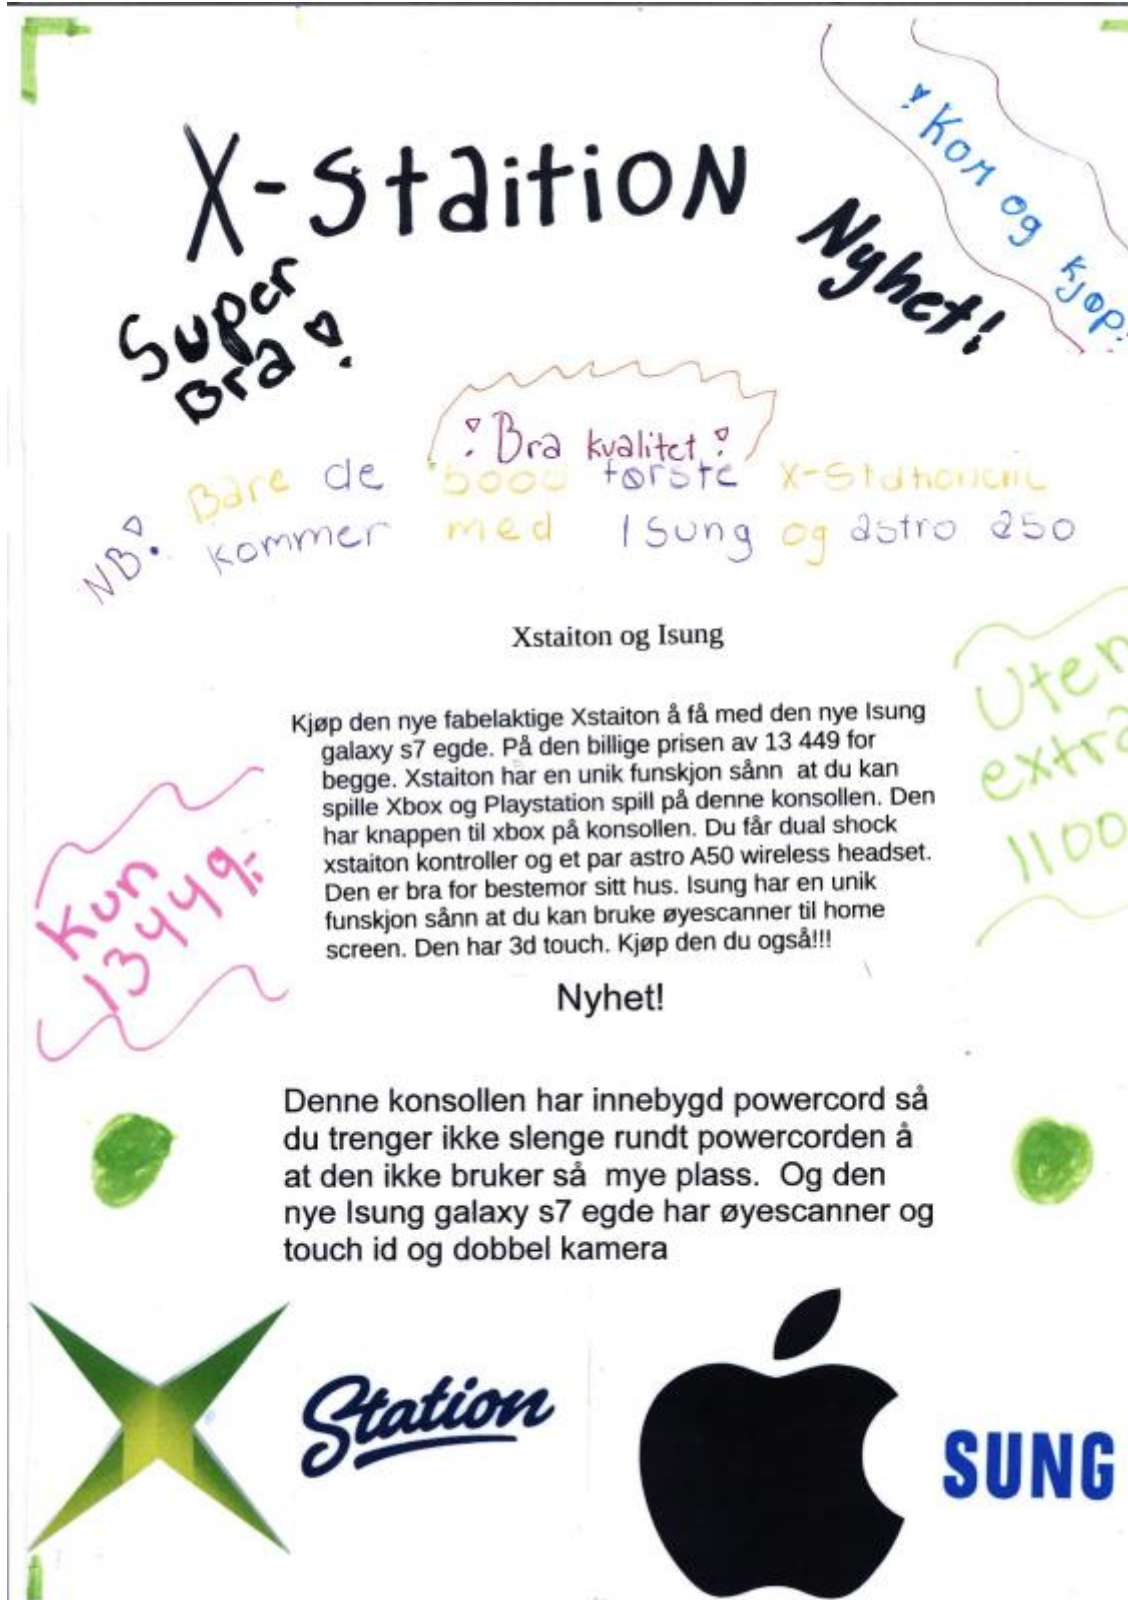 X-Staition
!Kom og kjøp!
Nyhet!
Super
Bra!
!Bra kvalitet!
NB! Bare de 5000 første X-Stationene
kommer med Isung og astro a50
Xstaiton og Isung
Uten
extra
1100
Kjøp den nye fabelaktige Xstaiton å få med den nye Isung
galaxy s7 egde. På den billige prisen av 13 449 for
begge. Xstaiton har en unik funskjon sånn at du kan
spille Xbox og Playstation spill på denne konsollen. Den
har knappen til xbox på konsollen. Du får dual shock
xstaiton kontroller og et par astro A50 wireless headset.
Den er bra for bestemor sitt hus. Isung har en unik
funskjon sånn at du kan bruke øyescanner til home
screen. Den har 3d touch. Kjøp den du også!!!
Kun
13449,-
Nyhet!
Denne konsollen har innebygd powercord så
du trenger ikke slenge rundt powercorden å
at den ikke bruker så mye plass. Og den
nye Isung galaxy s7 egde har øyescanner og
touch id og dobbel kamera
Station
SUNG